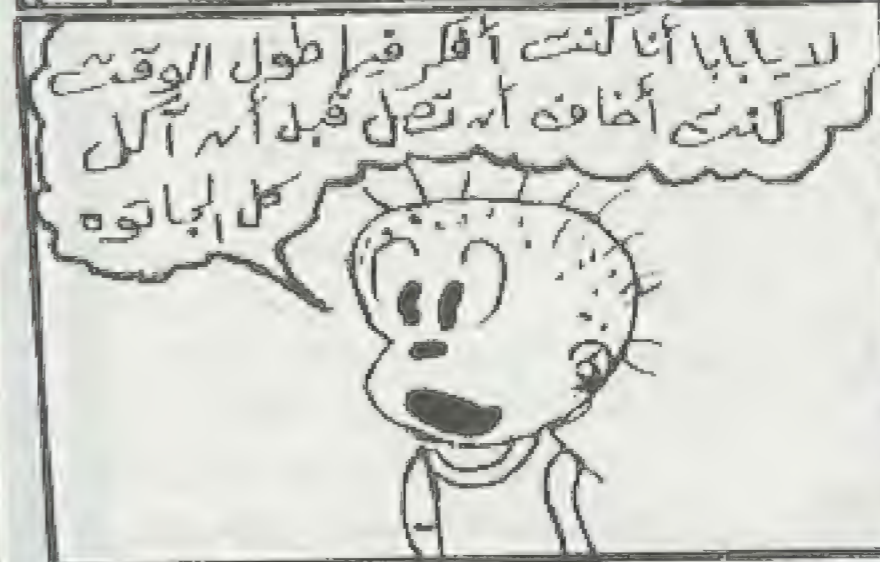 لا يا بابا أنا كنت أفكر فيها طول الوقت
كنت أخاف أن تصل قبل أن آكل
كل الجاتوه